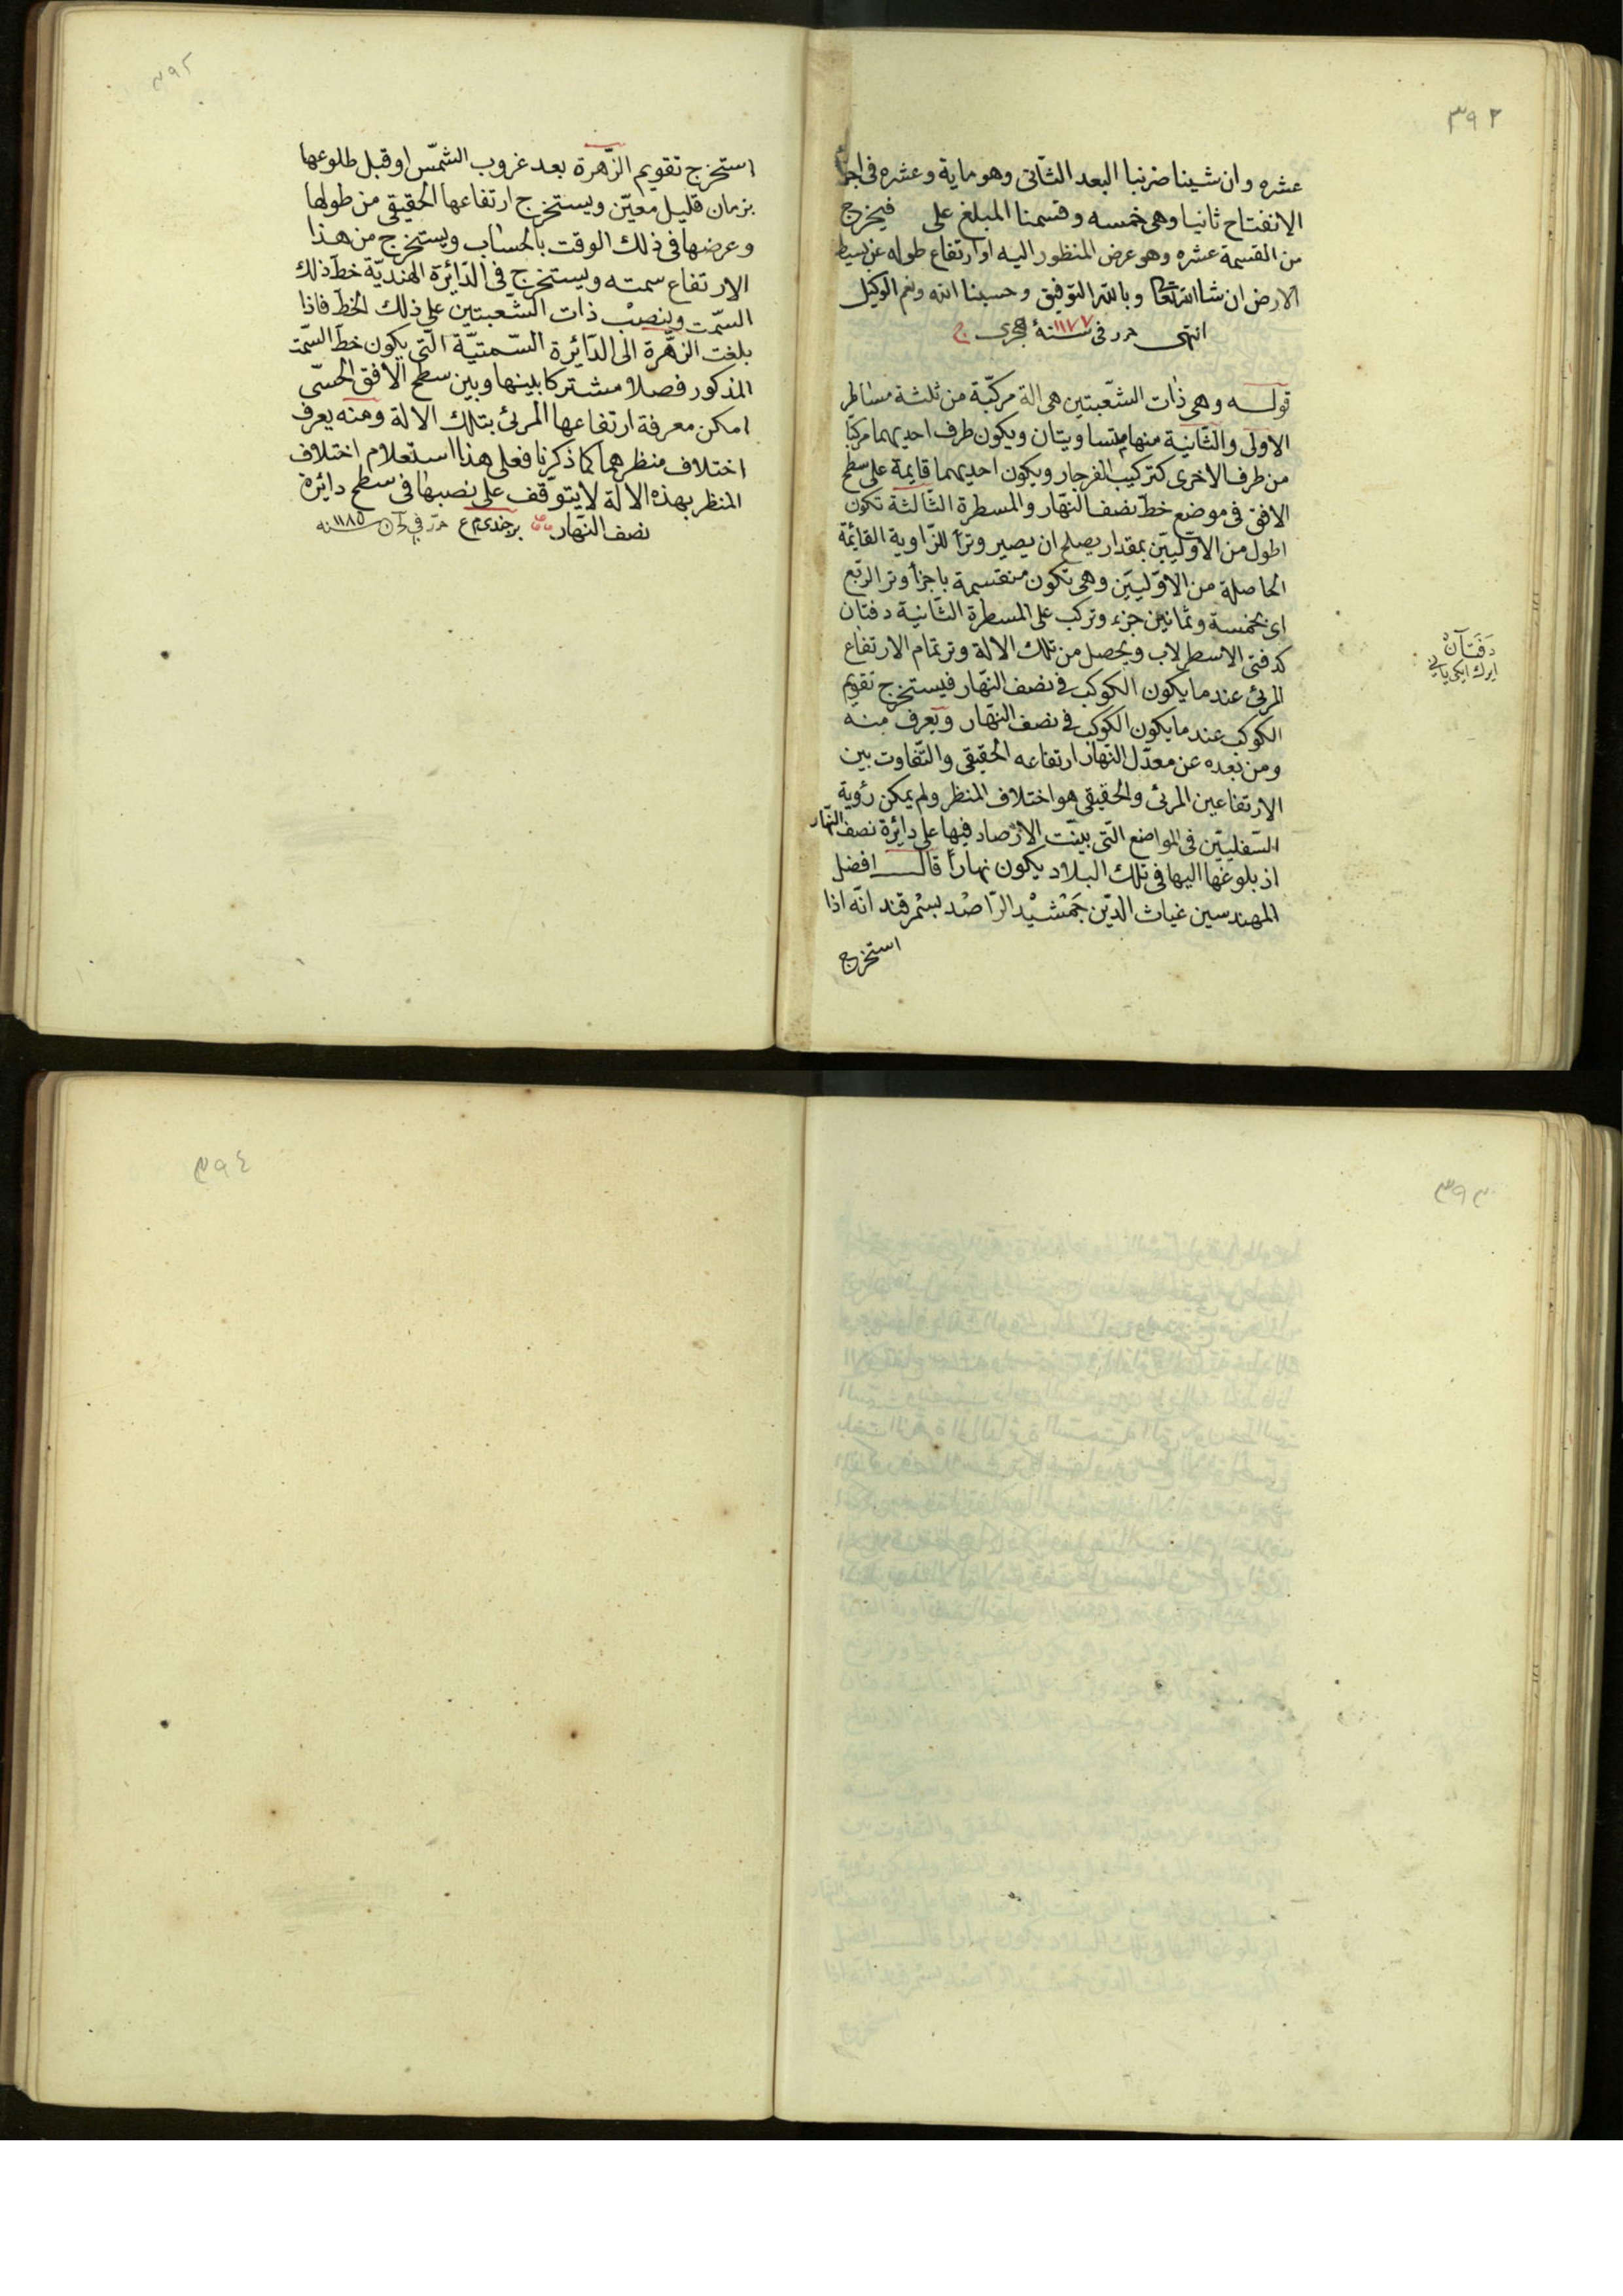 ٣٩٢
عشره وان شينا ضربنا البعد الثانى وهو ماية وعشره فى اجزأ
الانفتاح ثانيا وهى خمسه وقسمنا المبلغ على فيخرج
من القسمة عشره وهو عرض المنظور اليه او ارتفاع طوله عن بسيط
الارض ان شاالله تعالى وبالله التوفيق وحسبنا الله ونعم الوكيل
انتهى حرر فى سنة ١١٧٧ هجرى
قوله وهى ذات الشّعبتين هى الة مركّبة من ثلثة مساطر
الاولى والثّانية منها متساويتان ويكون طرف احديهما مركبا
من طرف الاخرى كتركيب الفرجار ويكون احديهما قايمة على سطح
الافق فى موضع خطّ نصف النّهار والمسطرة الثّالثة تكون
اطول من الاوّليّين بمقدار يصلح ان يصير وتراً للزّاوية القائمة
الحاصلة من الاوّليّين وهى تكون منقسمة باجزأ وتر الرّبع
اى بخمسة وثمانين جزء وتركب على المسطرة الثّانية دفتان
كدفتى الاسطرلاب ويحصل من تلك الالة وتر تمام الارتفاع
المرئى عند ما يكون الكوكب فى نصف النّهار فيستخرج تقويم
الكوكب عند ما يكون الكوكب فى نصف النّهار ويعرف منه
ومن بعده عن معدّل النّهار ارتفاعه الحقيقى والتّفاوت بين
الارتفاعين المرئى والحقيقى هو اختلاف المنظر ولم يمكن رؤية
السّفليّين فى المواضع الّتى بينّت الارصاد فيها على دايرة نصف النّهار
اذ بلوغها اليها فى تلك البلاد يكون نهاراً قال افضل
المهندسين غياث الدّين جَمْشيْد الرّاصد بسمرقند انّه اذا
استخرج
دَفّتَان
٣٩٢
استخرج تقويم الزّهرة بعد غروب الشمّس او قبل طلوعها
بزمان قليل معيّن ويستخرج ارتفاعها الحقيقى من طولها
وعرضها فى ذلك الوقت بالحساب ويستخرج من هذا
الارتفاع سمته ويستخرج فى الدّائرة الهنديّة خطّ ذلك
السّمت وينصب ذات الشّعبتين على ذلك الخطّ فاذا
بلغت الزّهرة الى الدّائرة السّمتيّة الّتى يكون خطّ السّمت
المذكور فصلا مشتركا بينها وبين سطح الافق الحسّى
امكن معرفة ارتفاعها المرئى بتلك الالة ومنه يعرف
اختلاف منظرهما كما ذكرنا فعلى هذا استعلام اختلاف
المنظر بهذه الالة لا يتوقّف على نصبها فى سطح دائرة
نصف النّهار برجندى ١١٨٥ سنه
٣٩٣
٣٩٤